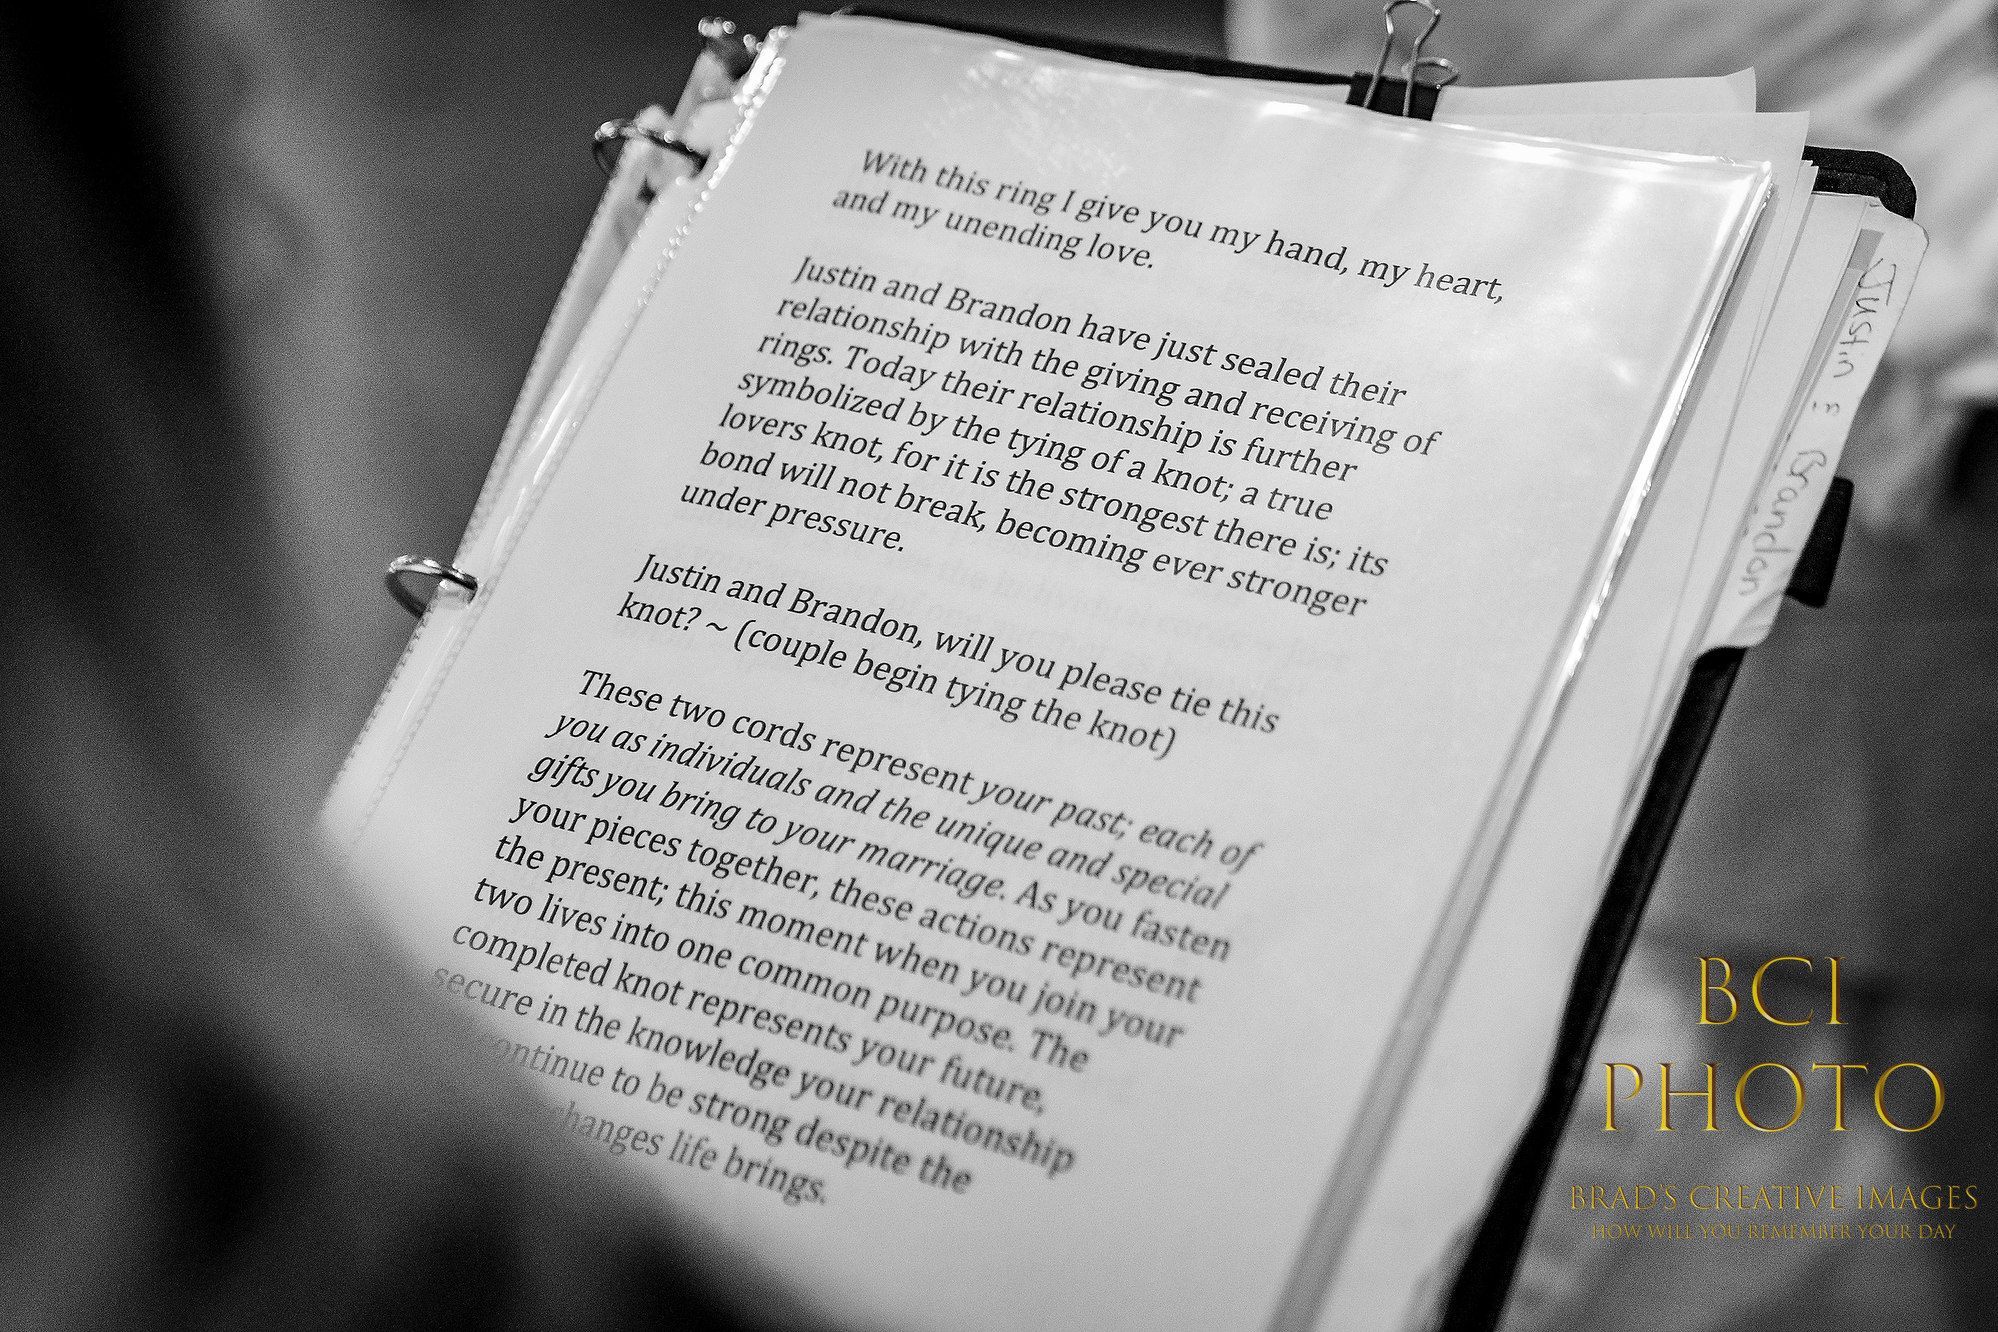 With this ring I give you my hand, my heart,
and my unending love.
Justin and Brandon have just sealed their
relationship with the giving and receiving of
rings. Today their relationship is further
symbolized by the tying of a knot; a true
lovers knot, for it is the strongest there is; its
bond will not break, becoming ever stronger
under pressure.
Justin and Brandon, will you please tie this
knot? ~ (couple begin tying the knot)
These two cords represent your past; each of
you as individuals and the unique and special
gifts you bring to your marriage. As you fasten
your pieces together, these actions represent
the present; this moment when you join your
two lives into one common purpose. The
completed knot represents your future,
secure in the knowledge your relationship
continue to be strong despite the
changes life brings.
Justin & Brandon
BCI
PHOTO
BRAD'S CREATIVE IMAGES
HOW WILL YOU REMEMBER YOUR DAY